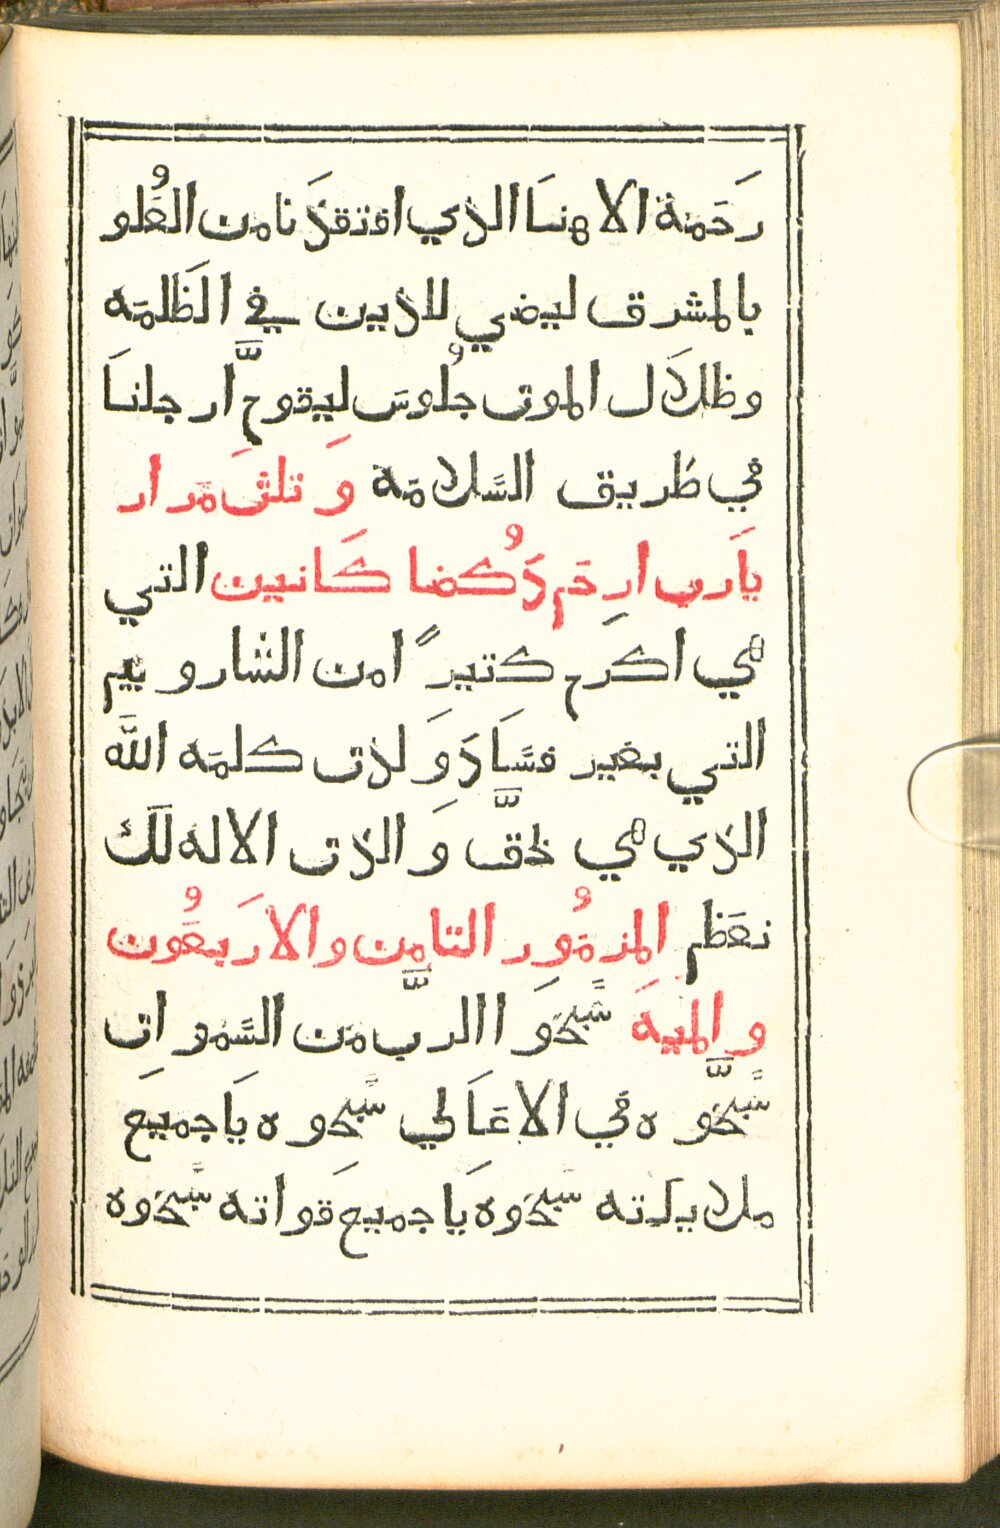 رَحَمة الاهنسَا الذي افتقدَنا من العُلو
بالمشرق ليضي للذين في الظَلمَه
وظلَال الموت جُلوسَ ليقوحَّ ارجلنسَا
في طريق السَّلامَة وَتلتَ مَرار
يَارب ارِحَم دَكُصا كَانين التي
هي اكرم كتيرِ ًا من الشارو بيم
التي بغير فسَّادِ وَ لدت كلمَه اللَّه
الذي هي لحقَّ وَ الدت الاله لَك
نعَظم المزمُور التامِن والارَبعُون
والميِهَ سَّبحَوا الرب من السَّموات
سَّبحَّوه في الاعَالي سَّبحَوه يَاجميِعَ
ملايكته سَّبحَوه يَاجميع قَواته سَّبحَوه